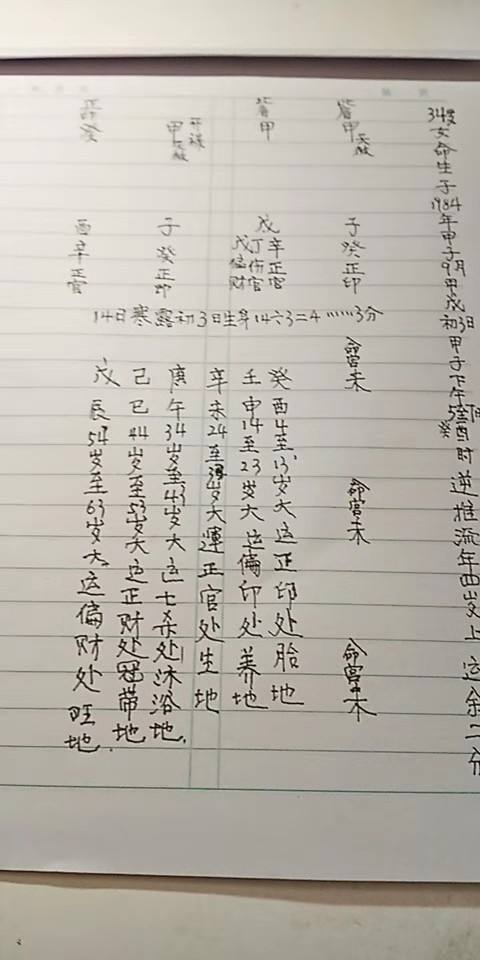 34岁女命生子1984年甲子9月甲戌初3日甲子下午癸酉时逆推流年四岁上运余二分
甲 子癸正印 命宫未 命宫未 命宫未
甲 戌辛正官
丁伤官
戊偏财
甲 子癸正印
正印癸 酉辛正官
14日寒露初3日生 14 3=4……3分
癸酉4至13岁大运正印处胎地
壬申14至23岁大运偏印处养地
辛未24至岁大運正官处生地
庚午34岁至43岁大运七杀处沐浴地.
己巳44岁至53岁大运正财处冠带地
戊辰54岁至63岁大运偏财处旺地.